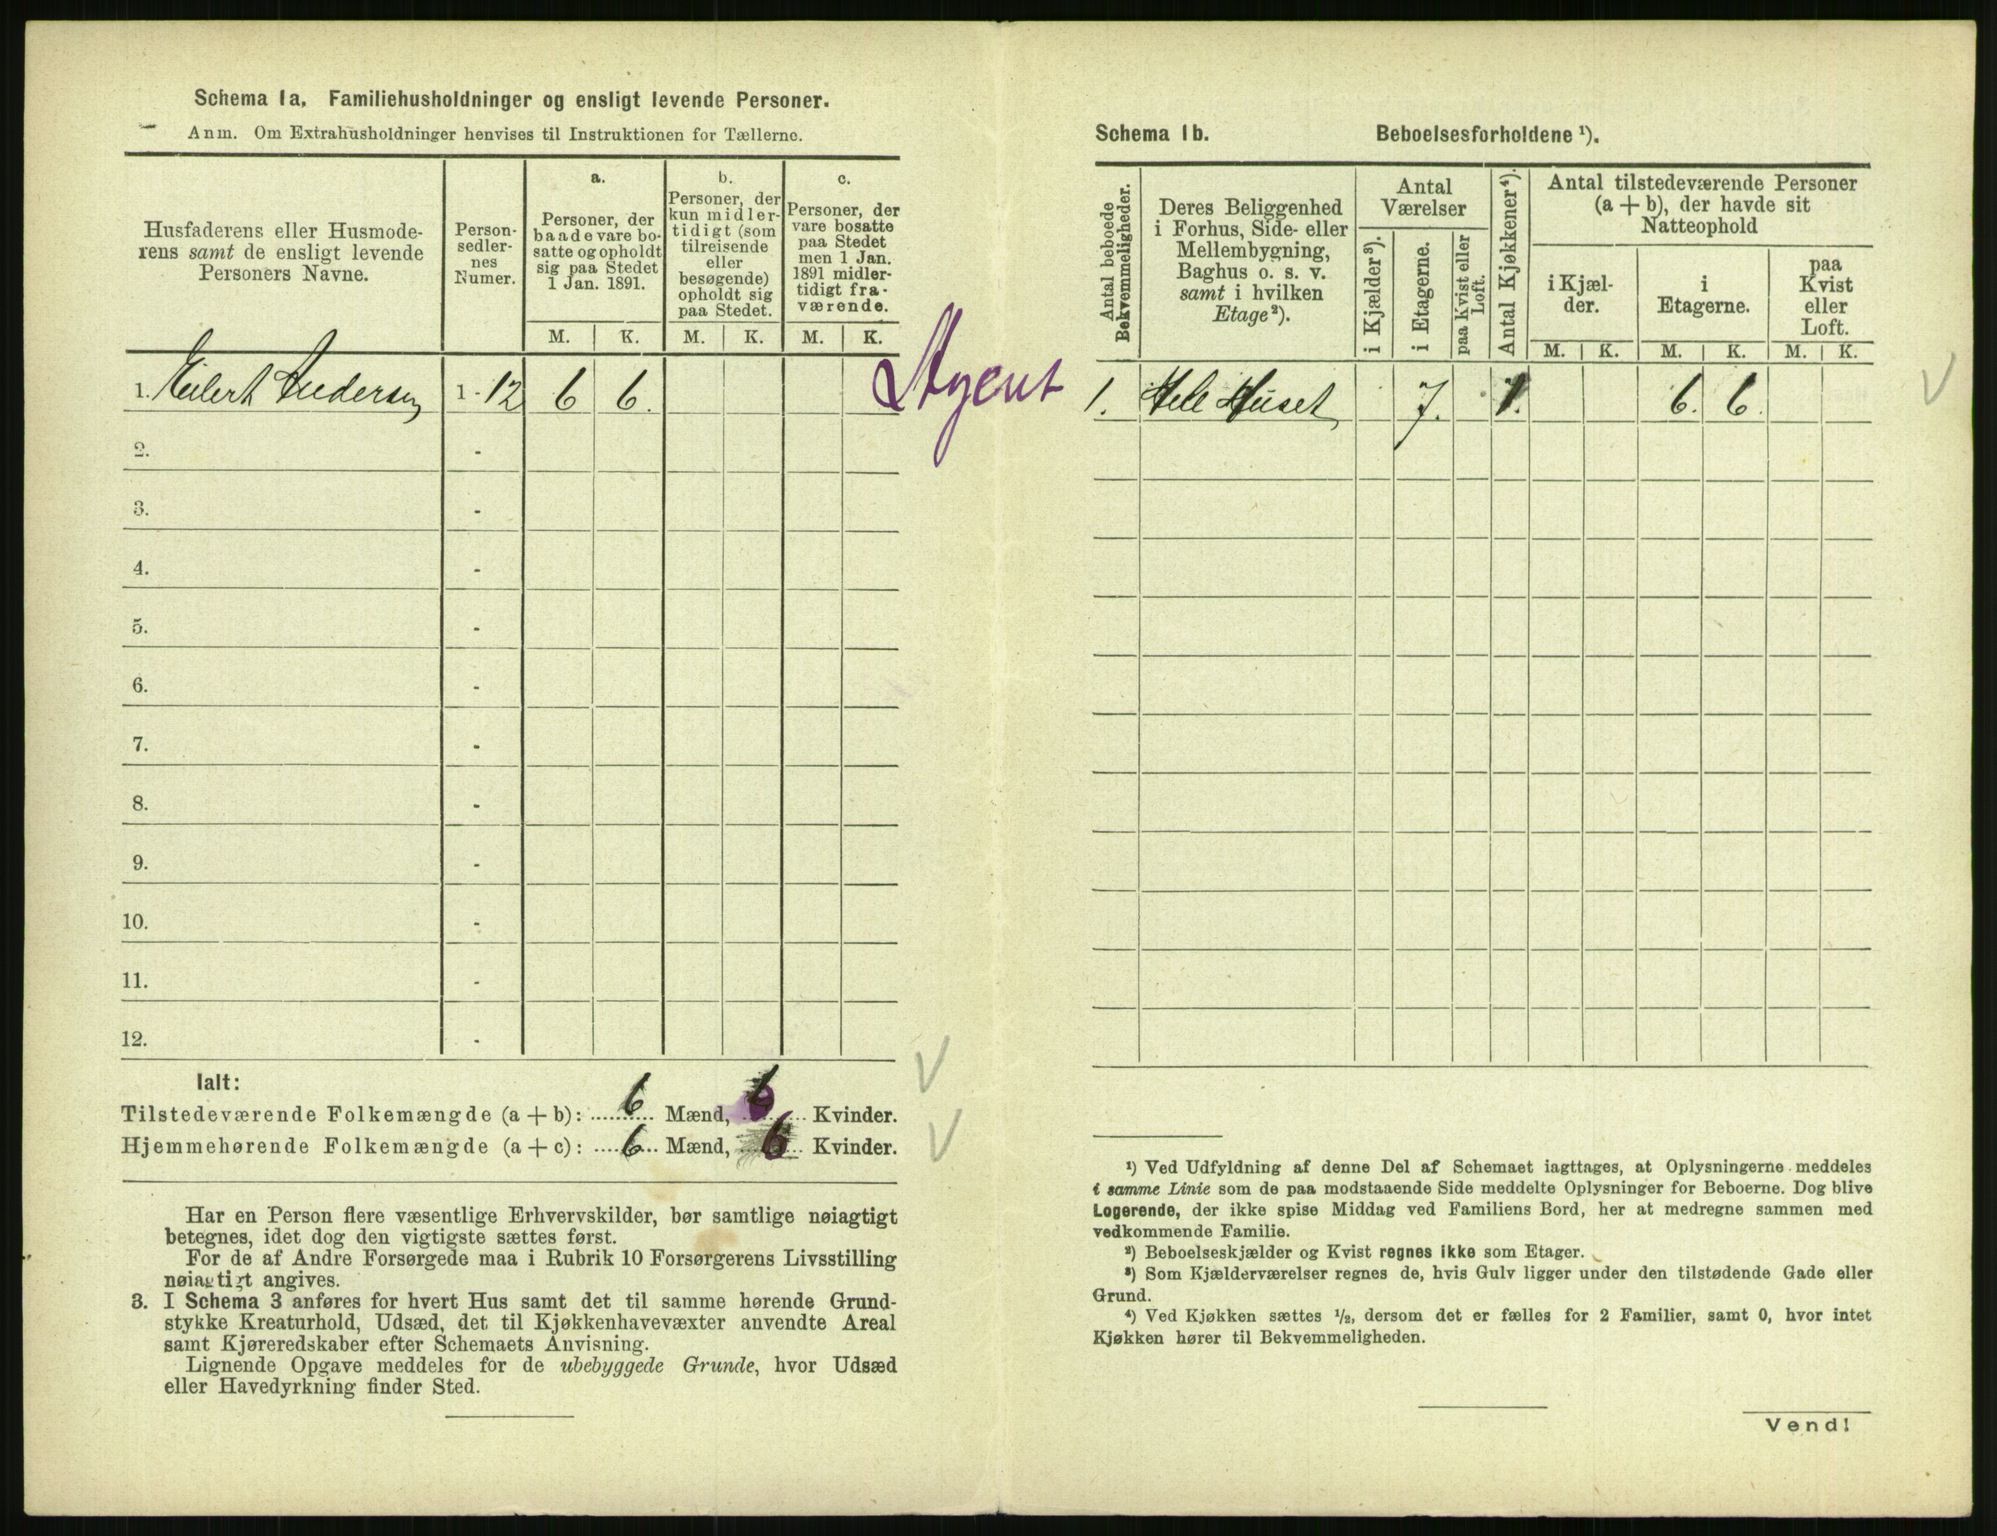 Schema 1a. Familiehusholdninger og ensligt levende Personer.
Anm. Om Extrahusholdninger henvises til Instruktionen for Tællerne.
Husfaderens eller Husmode-
rens samt de ensligt levende
Personers Navne.
Person-
sedler-
nes
Numer.
a.
Personer, der
baade vare bo-
satte og opholdt
sig paa Stedet
1 Jan. 1891.
b.
Personer, der
kun midler-
tidigt (som
tilreisende
eller
besøgende)
opholdt sig
paa Stedet.
c.
Personer, der
vare bosatte
paa Stedet
men 1 Jan.
1891 midler-
tidigt fra-
værende.
M. K. M. K. M. K.
1. Eilert Andersen 1 - 12 6 6. Agent
2. -
3. -
4. -
5. -
6. -
7. -
8. -
9. -
10. -
11. -
12. -
Ialt:
Tilstedeværende Folkemængde (a + b): 6 Mænd, 6 Kvinder.
Hjemmehørende Folkemængde (a + c): 6 Mænd, 6 Kvinder.
Har en Person flere væsentlige Erhvervskilder, bør samtlige nøiagtigt
betegnes, idet dog den vigtigste sættes først.
For de af Andre Forsørgede maa i Rubrik 10 Forsørgerens Livsstilling
nøiagtigt angives.
3. I Schema 3 anføres for hvert Hus samt det til samme hørende Grund-
stykke Kreaturhold, Udsæd, det til Kjøkkenhavevæxter anvendte Areal
samt Kjøreredskaber efter Schemaets Anvisning.
Lignende Opgave meddeles for de ubebyggede Grunde, hvor Udsæd
eller Havedyrkning finder Sted.
Schema 1b. Beboelsesforholdene ¹).
Antal beboede
Bekvemmeligheder.
Deres Beliggenhed
i Forhus, Side- eller
Mellembygning,
Baghus o. s. v.
samt i hvilken
Etage ²).
Antal
Værelser
i Kjælder ³).
i Etagerne.
paa Kvist eller
Loft.
Antal Kjøkkener ⁴).
Antal tilstedeværende Personer
(a + b), der havde sit
Natteophold
i Kjæl-
der.
i
Etagerne.
paa
Kvist
eller
Loft.
M. K. M. K. M. K.
1. Hele Huset 7. 1. 6. 6.
¹) Ved Udfyldning af denne Del af Schemaet iagttages, at Oplysningerne meddeles
i samme Linie som de paa modstaaende Side meddelte Oplysninger for Beboerne. Dog blive
Logerende, der ikke spise Middag ved Familiens Bord, her at medregne sammen med
vedkommende Familie.
²) Beboelseskjælder og Kvist regnes ikke som Etager.
³) Som Kjælderværelser regnes de, hvis Gulv ligger under den tilstødende Gade eller
Grund.
⁴) Ved Kjøkken sættes ½, dersom det er fælles for 2 Familier, samt 0, hvor intet
Kjøkken hører til Bekvemmeligheden.
Vend!